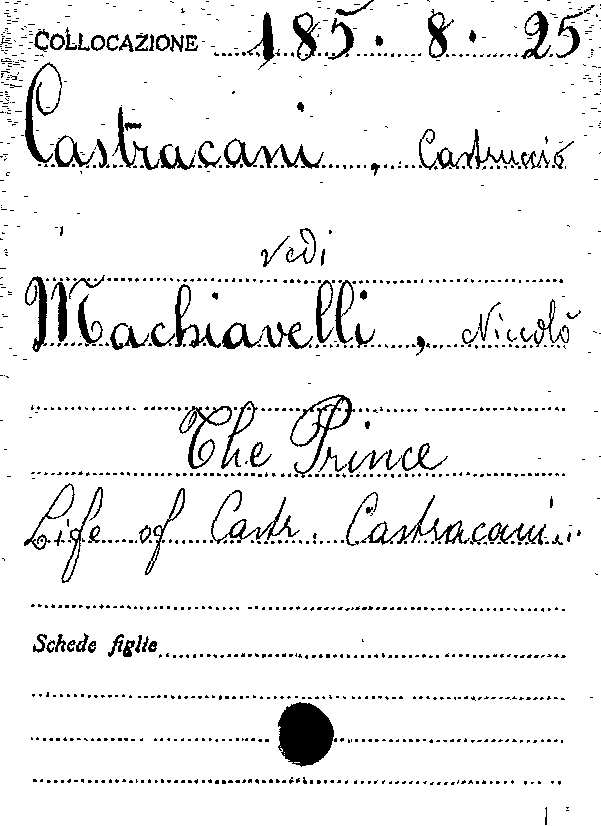 COLLOCAZIONE 185. 8. 25
Castracani, Castruccio
vedi
Machiavelli, Niccolò
The Prince
Life of Castr. Castracani...
Schede figlie